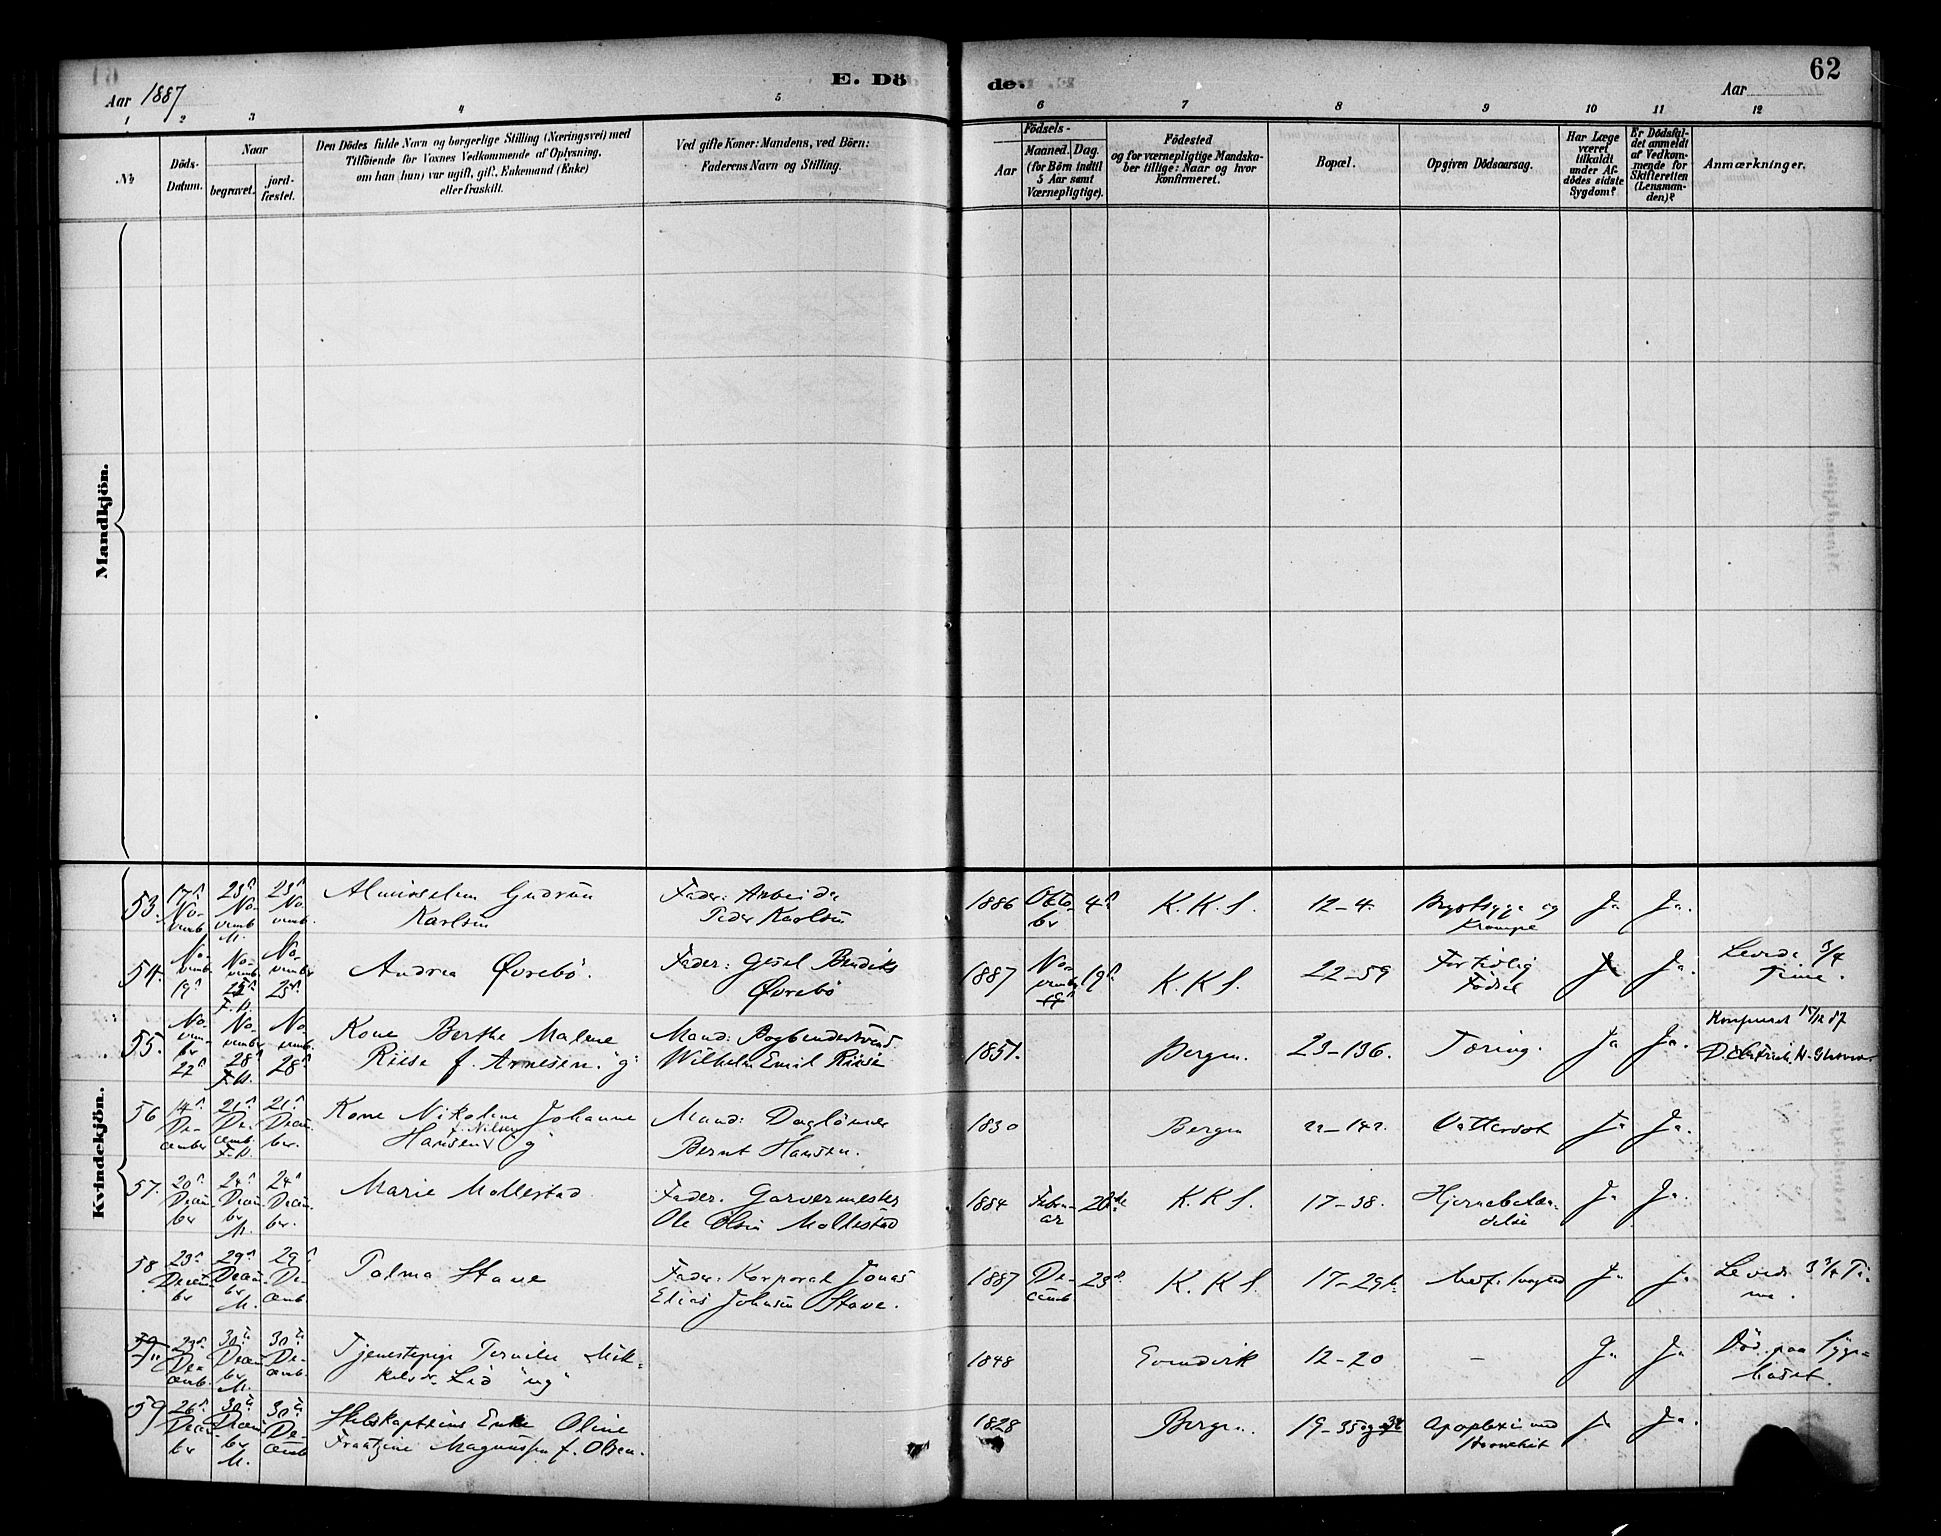 E. Döde.
62
Aar 1887
Aar
1 2 3 4 5 6 7 8 9 10 11 12
№
Döds-
Datum.
Naar
begravet.
jord-
fæstet.
Den Dödes fulde Navn og borgerlige Stilling (Næringsvei) med
Tilföiende for Voxnes Vedkommende af Oplysning,
om han (hun) var ugift, gift, Enkemand (Enke)
eller fraskilt.
Ved gifte Koner: Mandens, ved Börn:
Faderens Navn og Stilling.
Födsels-
Aar
Maaned. Dag.
(for Börn indtil
5 Aar samt
Værnepligtige).
Födested
og for værnepligtige Mandska-
ber tillige: Naar og hvor
konfirmeret.
Bopæl.
Opgiven Dödsaarsag.
Har Læge
været
tilkaldt
under Af-
dödes sidste
Sygdom?
Er Dödsfal-
det anmeldt
af Vedkom-
mende for
Skifteretten
(Lensman-
den)?
Anmærkninger.
Mandkjön.
Kvindekjön.
53.
17
No-
vemb
23
No-
vemb
M.
23
No-
vemb.
Gudrun
Karlsen
Fader: Arbeider
Peder Karlsen
1886
Okto-
ber
4
K. K. S.
12-4.
Brystsyge og
Krampe
Ja
Ja.
54.
No-
vember
19
No-
vemb
25
F. H.
No-
vember
25
Andrea Övrebö.
Fader: Gesel Bendiks
Övrebö
1887
No-
vember
19
K. K. S.
22-59
For tidlig
Födsel
Ja.
Levede 3/4
Time.
55.
No-
vem-
ber
22
No-
vember
28
F. H.
No-
vemb.
28
Kone Berthe Malene
Riise f. Arnesen. "g"
Mand: Bogbindersvend
Wilhelm Emil Riise
1851.
Bergen.
23-136.
Tæring.
Ja
Ja.
56
14
De-
cember
21
De-
cemb.
F. H.
21
Decem-
ber.
Kone Nikoline Johanne
f. Nilsen
Hansen "g"
Mand: Daglönner
Bernt Hansen.
1830
Bergen
22-142.
Vattersot
Ja
Ja.
57.
20
Decem-
ber
24
Decem-
ber
M.
24
Decem-
ber.
Marie Mollestad
Fader. Garvermester
Ole Olsen Mollestad
1884
Febru-
ar
26de
K. K. S.
17-38.
Hjernebetæn-
delse
Ja
Ja.
58
23
Decem-
ber
29
Decem-
ber
M.
29
De-
cemb
Palma Stave
Fader: Korporal Jonas
Elias Johnsen Stave.
1887
De-
cemb
23
K. K. S.
17-29b.
Medf. Svaghed
Ja
Ja
Levede 3 3/4 Ti-
me.
23
De-
cemb.
30
Decem-
ber
M.
30
De-
cemb.
Tjenestepige Mik-
kelsdr. Lid "ug"
1848
Evindvik
12-20
-
Ja
Ja
Död paa Syge-
huset.
59
26
Decem-
ber
30
Decem-
ber
M.
30
De-
cemb
Skibskapteins Enke Oline
Frantzine Magnussen f. Olsen.
1828
Bergen.
19-35
Apoplexi med
Ja
Ja.